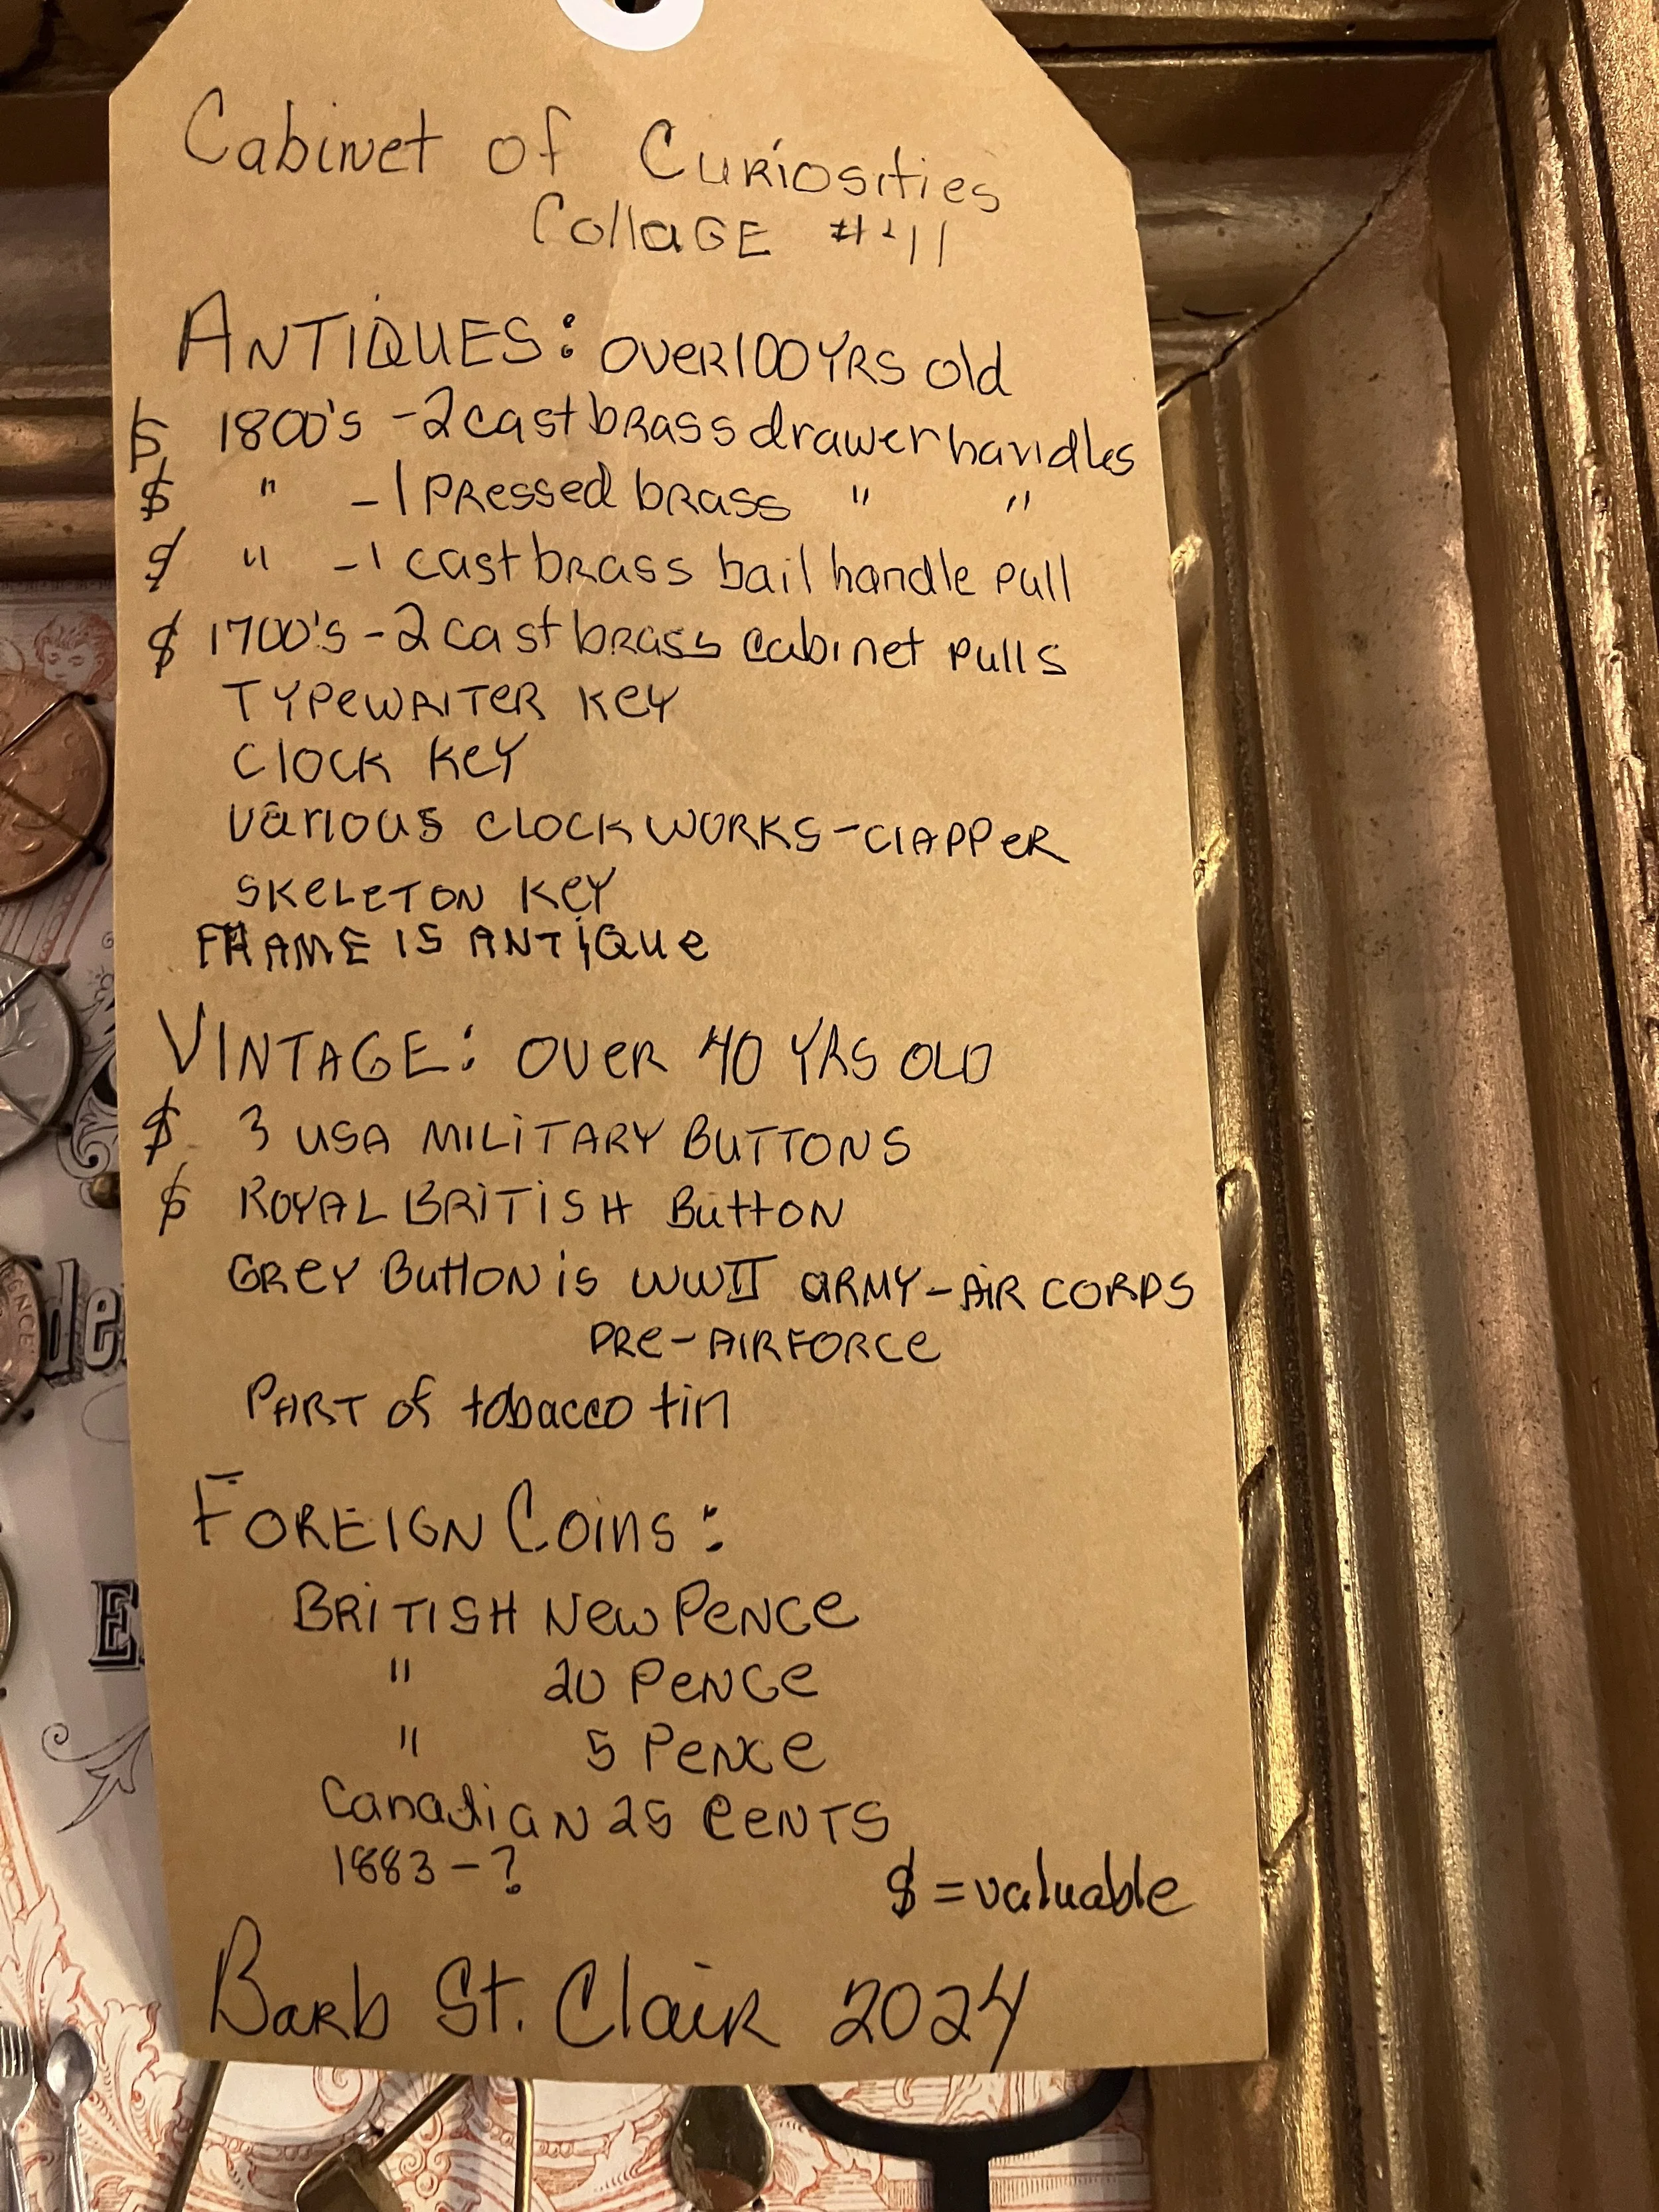 Cabinet of Curiosities
Collage #41
Antiques: over 100 yrs old
$ 1800's - 2 cast brass drawer handles
$ " - 1 pressed brass " "
$ " - 1 cast brass bail handle pull
$ 1700's - 2 cast brass cabinet pulls
Typewriter key
Clock key
Various clock works - clapper
Skeleton key
Frame is antique
Vintage: over 40 yrs old
$ 3 USA Military Buttons
$ Royal British Button
Grey Button is WWII Army-Air Corps
pre-airforce
Part of tobacco tin
Foreign Coins:
British New Pence
" 20 Pence
" 5 Pence
Canadian 25 cents
1883 - ?
$ = valuable
Barb St. Clair 2024